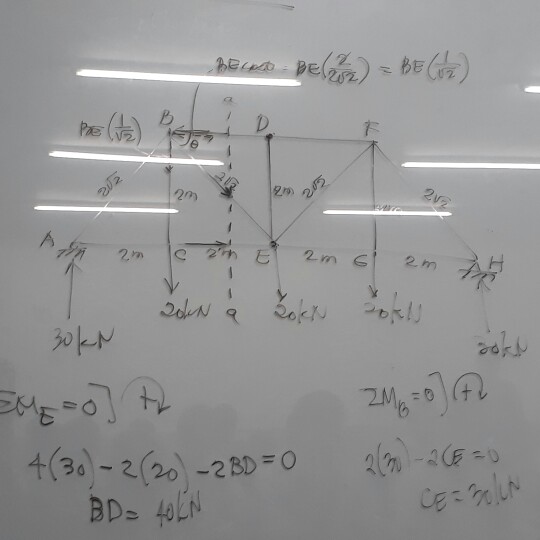 BE cosθ = BE(2/2√2) = BE(1/√2)
a
B D F
BE(1/√2) θ
2√2 2m 2√2 2m 2√2 2√2
A 2m C 2m E 2m G 2m H
20kN a 20kN 20kN
30kN 30kN
ΣM_E = 0] +
ΣM_B = 0] +
4(30) - 2(20) - 2BD = 0
BD = 40kN
2(30) - 2CE = 0
CE = 30kN